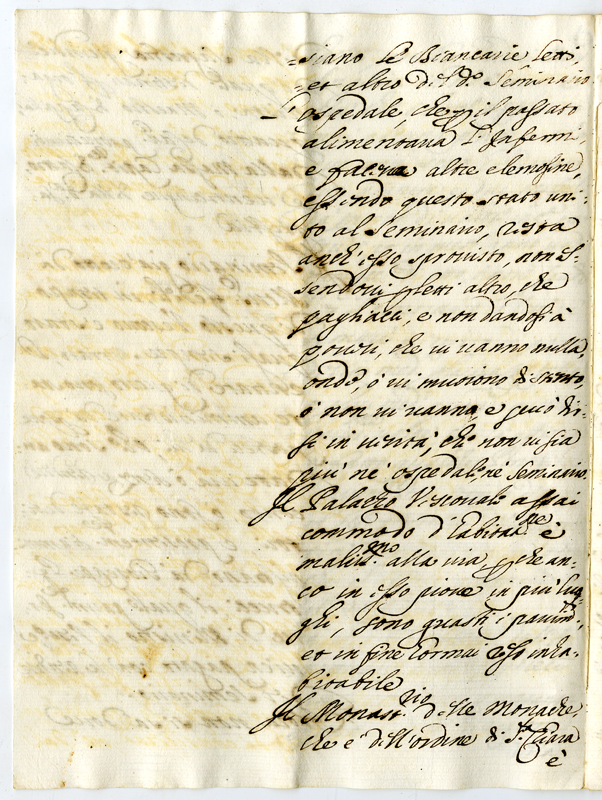 =siano le Biancarie letti,
=et altro di d.º Seminario
ospedale, che p il passato
alimentava l'Infermi,
e faceva altre elemosine,
essendo questo stato uni:
to al seminario, resta
anch'esso sprovisto, non es:
sendovi p letti altro, che
pagliacci, e non dandosi à
poveri, che vi vanno nulla,
onde, ò vi muoiono di stento,
ò non vi vanno, e può dir:
si in verità, che non vi sia
più né ospedale, né seminario.
Il Palazzo Vescoval.e assai
commodo d'habitat.ne è
malis.mo alla via, p che an:
co in esso piove in più luo:
ghi, sono guasti i pavim.ti,
et in fine hormai reso inha:
bitabile
Il Monast.rio delle Monache,
che è dell'ordine di S.ta Chiara
è